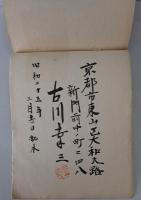 京都市東山区大和大路
新門前中ノ町二四八
古川幸三
昭和二十五年
二月